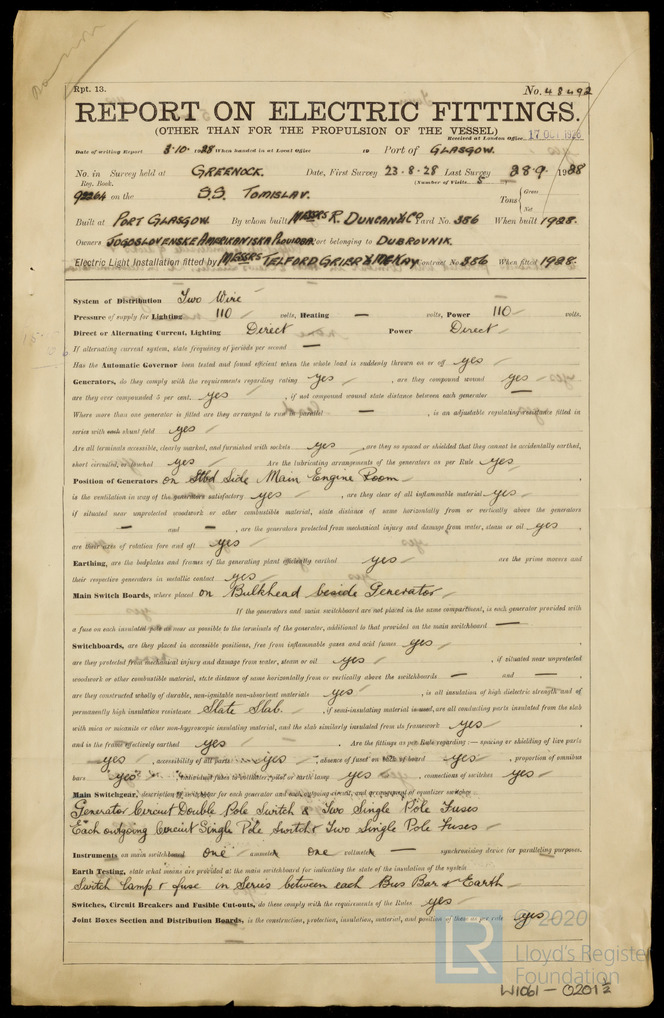 Rpt. 13.
No. 48492
REPORT ON ELECTRIC FITTINGS.
(OTHER THAN FOR THE PROPULSION OF THE VESSEL)
Received at London Office 17 OCT 1928
Date of writing Report 3·10· 1928 When handed in at Local Office 19 Port of GLASGOW.
No. in Survey held at GREENOCK. Date, First Survey 23·8·28 Last Survey 28·9· 1928
Reg. Book. (Number of Visits 5
on the S.S. TOMISLAV. Tons { Gross
Net
Built at PORT GLASGOW. By whom built MESSRS R. DUNCAN & CO Yard No. 386 When built 1928.
Owners JOGOSLOVENSKE AMERIKANISKA PLOVIDBA. Port belonging to DUBROVNIK.
Electric Light Installation fitted by MESSRS TELFORD GRIER & McKAY Contract No. 386 When fitted 1928.
System of Distribution Two Wire
Pressure of supply for Lighting 110 volts, Heating — volts, Power 110 volts.
Direct or Alternating Current, Lighting Direct Power Direct
If alternating current system, state frequency of periods per second —
Has the Automatic Governor been tested and found efficient when the whole load is suddenly thrown on or off yes
Generators, do they comply with the requirements regarding rating yes , are they compound wound yes
are they over compounded 5 per cent. yes , if not compound wound state distance between each generator —
Where more than one generator is fitted are they arranged to run in parallel — , is an adjustable regulating resistance fitted in
series with each shunt field yes
Are all terminals accessible, clearly marked, and furnished with sockets yes , are they so spaced or shielded that they cannot be accidentally earthed,
short circuited, or touched yes Are the lubricating arrangements of the generators as per Rule yes
Position of Generators on Stbd Side Main Engine Room
, is the ventilation in way of the generators satisfactory yes , are they clear of all inflammable material yes ,
if situated near unprotected woodwork or other combustible material, state distance of same horizontally from or vertically above the generators
— and — , are the generators protected from mechanical injury and damage from water, steam or oil yes ,
are their axes of rotation fore and aft yes
Earthing, are the bedplates and frames of the generating plant efficiently earthed yes are the prime movers and
their respective generators in metallic contact yes
Main Switch Boards, where placed on Bulkhead beside Generator
If the generators and main switchboard are not placed in the same compartment, is each generator provided with
a fuse on each insulated pole as near as possible to the terminals of the generator, additional to that provided on the main switchboard —
Switchboards, are they placed in accessible positions, free from inflammable gases and acid fumes yes ,
are they protected from mechanical injury and damage from water, steam or oil yes , if situated near unprotected
woodwork or other combustible material, state distance of same horizontally from or vertically above the switchboards — and — ,
are they constructed wholly of durable, non-ignitable non-absorbent materials yes , is all insulation of high dielectric strength and of
permanently high insulation resistance Slate Slab. , if semi-insulating material is used, are all conducting parts insulated from the slab
with mica or micanite or other non-hygroscopic insulating material, and the slab similarly insulated from its framework yes ,
and is the frame effectively earthed yes . Are the fittings as per Rule regarding:— spacing or shielding of live parts
yes , accessibility of all parts yes , absence of fuses on back of board yes , proportion of omnibus
bars yes , individual fuses to voltmeter, pilot or earth lamp yes , connections of switches yes
Main Switchgear, description of switches for each generator and each outgoing circuit, and arrangement of equalizer switches
Generator Circuit Double Pole Switch & Two Single Pole Fuses
Each outgoing Circuit Single Pole Switch & Two Single Pole Fuses
Instruments on main switchboard one ammeters one voltmeters — synchronising device for paralleling purposes.
Earth Testing, state what means are provided at the main switchboard for indicating the state of the insulation of the system
Switch lamp & fuse in Series between each Bus Bar & Earth
Switches, Circuit Breakers and Fusible Cut-outs, do these comply with the requirements of the Rules yes
Joint Boxes Section and Distribution Boards, is the construction, protection, insulation, material, and position of these as per rule yes
© 2020
LR
Lloyd's Register
Foundation
W1061 — 0201½